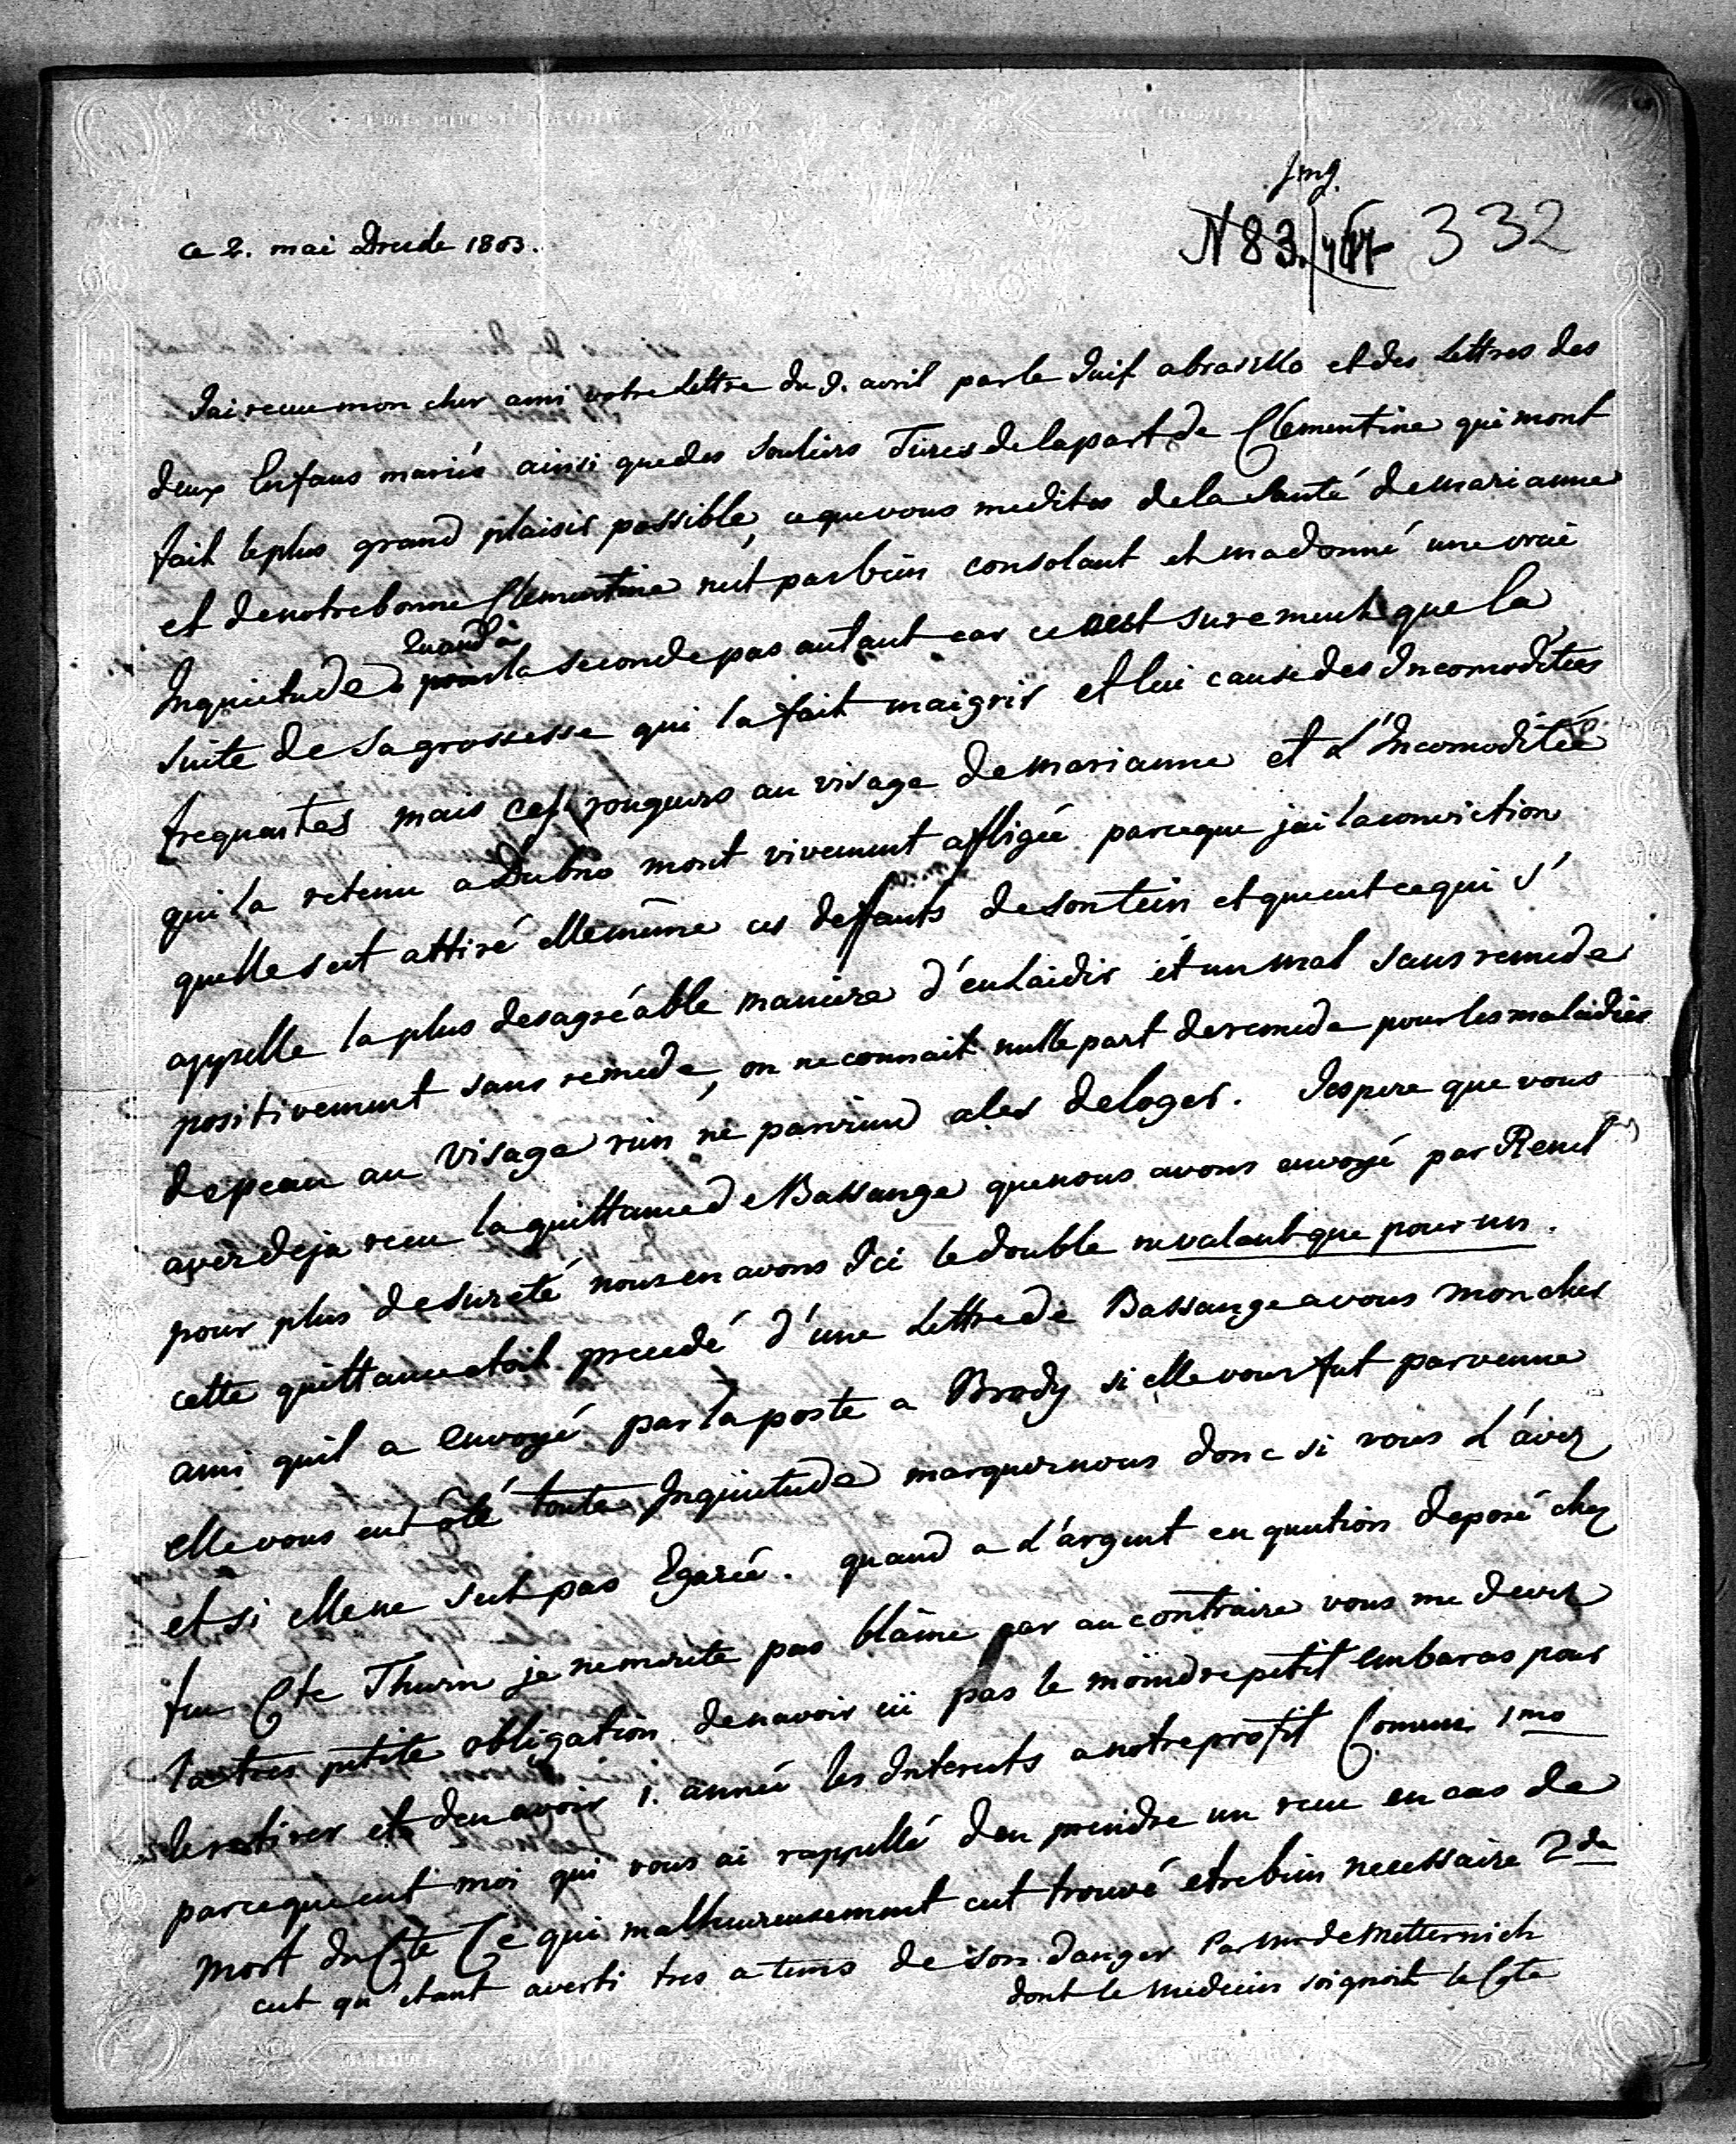 ce 2. mai Dresde 1803.
N 83. 332
Jai recue mon cher ami votre Lettre du 9. avril par le Juif et des Lettres des
deux Enfans mariés ainsi que des souliers Turcs de la part de Clementine qui mont
fait le plus grand plaisir possible, ce que vous me dites de la santé de marianne
et de notre bonne Clementine nest pas bien consolant et ma donné une vraie
Inquietude Quand à pour la seconde pas autant car ce nest surement que la
suite de sa grossesse qui la fait maigrir et lui cause des Incomoditées
frequentes mais ces rougeurs au visage de marianne et L'Incomoditée
qui la retenu a Dubno mont vivement affligée parceque jai la conviction
quelle sest attiré elle même ces deffauts de son tein et que cest ce qui s'
appelle la plus desagréable maniere d'enlaidir et un mal sans remede
positivement sans remede, on ne connait nulle part de remede pour les maladies
de peau au visage rien ne parvient a les deloger. Jespere que vous
avez deja recu la quittance de Bassange que nous avons envoyé par
pour plus de sureté nous en avons Ici le double ne valant que pour un.
cette quittance etoit precedé d'une Lettre de Bassange a vous mon cher
ami quil a envoyé par la poste a Brody si elle vous fut parvenue
elle vous eut ôté toute Inquietude marquez nous donc si vous L'avez
et si elle ne sest pas Egarée. quand a L'argent en question deposé chez
feu Cte Thurn je ne merite pas blâme car au contraire vous me devez
la tres petite obligation de navoir eü pas le moindre petit embaras pour
le retirer et den avoir 1. année les Interets a notre profit Comun 1mo
parceque cest moi qui vous ai rappellé den prendre un recu en cas de
mort du Cte Ce qui malheureusement cest trouvé etre bien necessaire 2do
cest qu'etant averti tres a tems de son danger Par de Metternich
dont le medecin soignoit le Cte